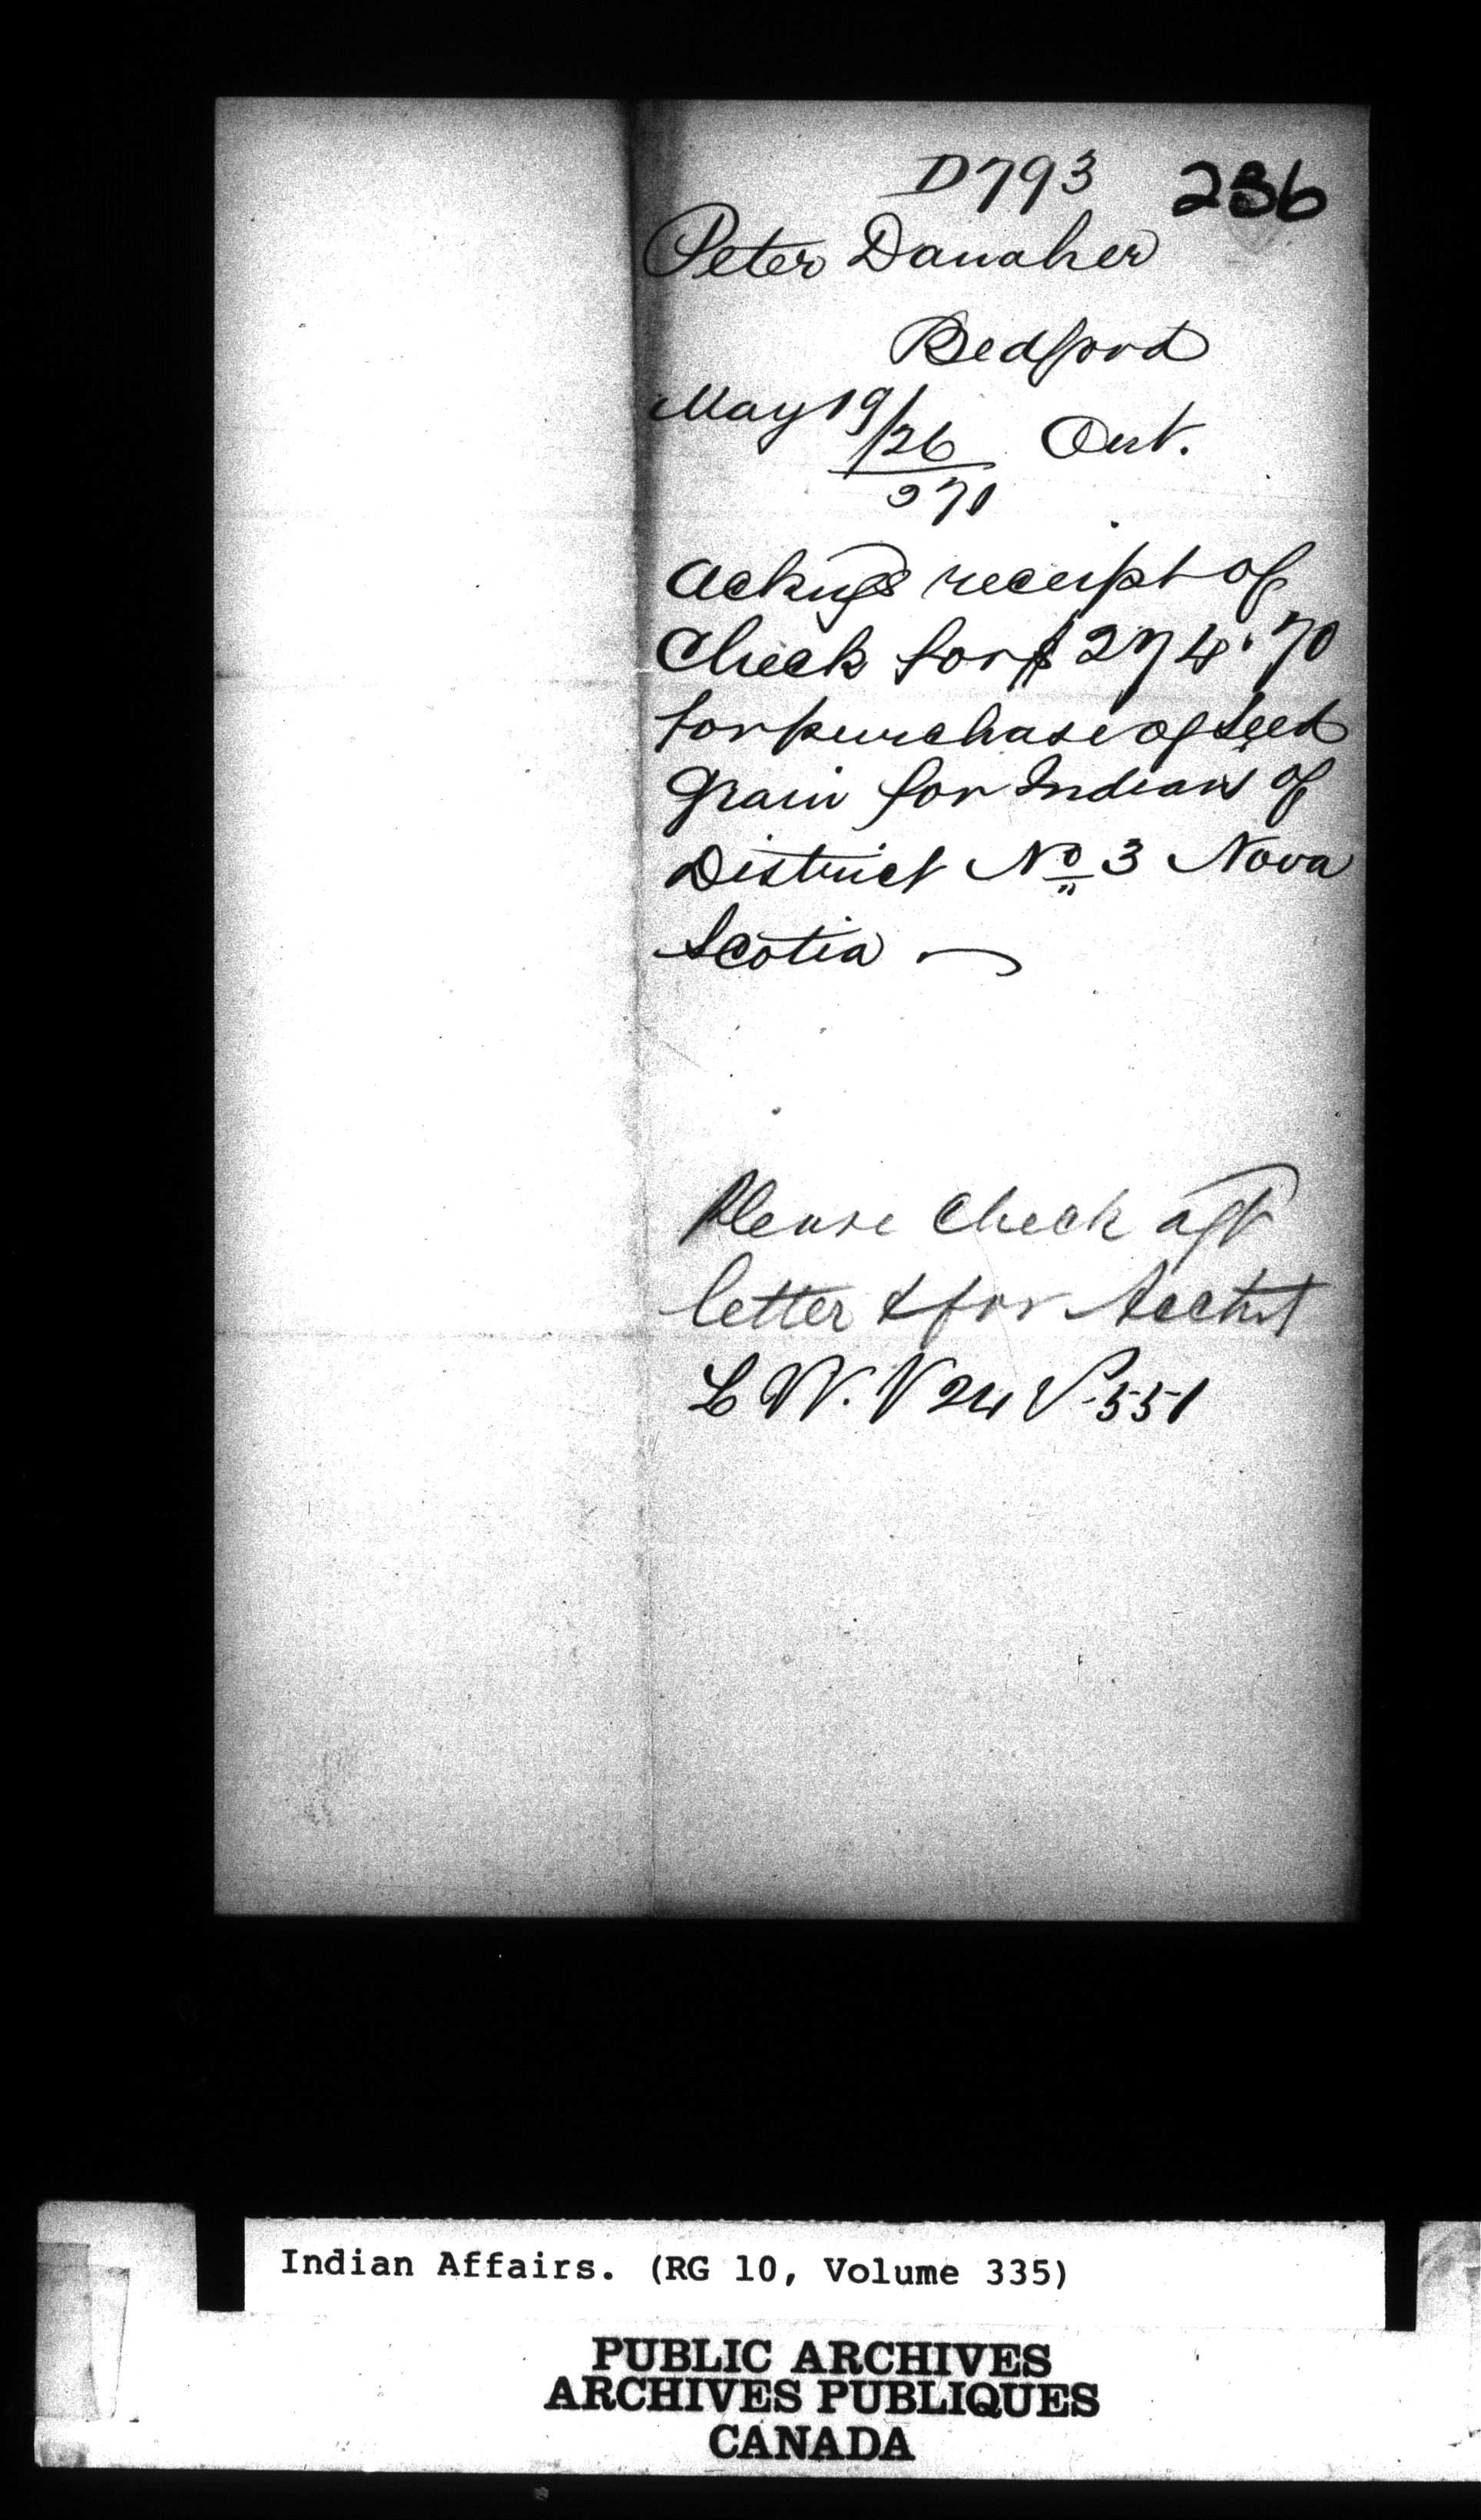 D793 236
Peter Danaher
Bedford
May 19/26 Ont.
371
Ackngs receipt of
Check for $274.70
for purchase of seed
Grain for Indians of
District No 3 Nova
Scotia —
Please check off
letter & for Acctnt
L W. V 24 P. 551
Indian Affairs. (RG 10, Volume 335)
PUBLIC ARCHIVES
ARCHIVES PUBLIQUES
CANADA